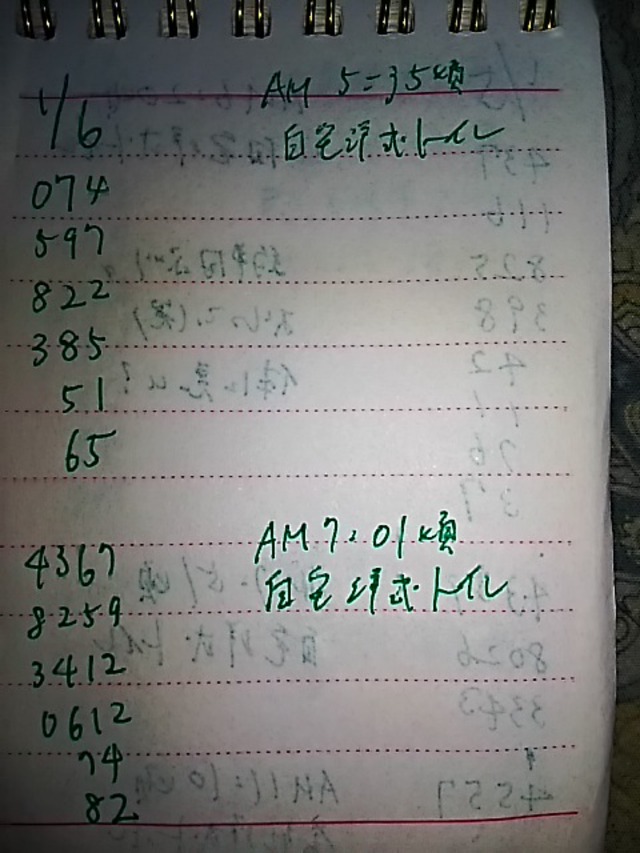 1/6 AM 5:35頃
自宅洋式トイレ
074
597
822
385
51
65
4367 AM 7:01頃
8259 自宅洋式トイレ
3412
0612
74
82